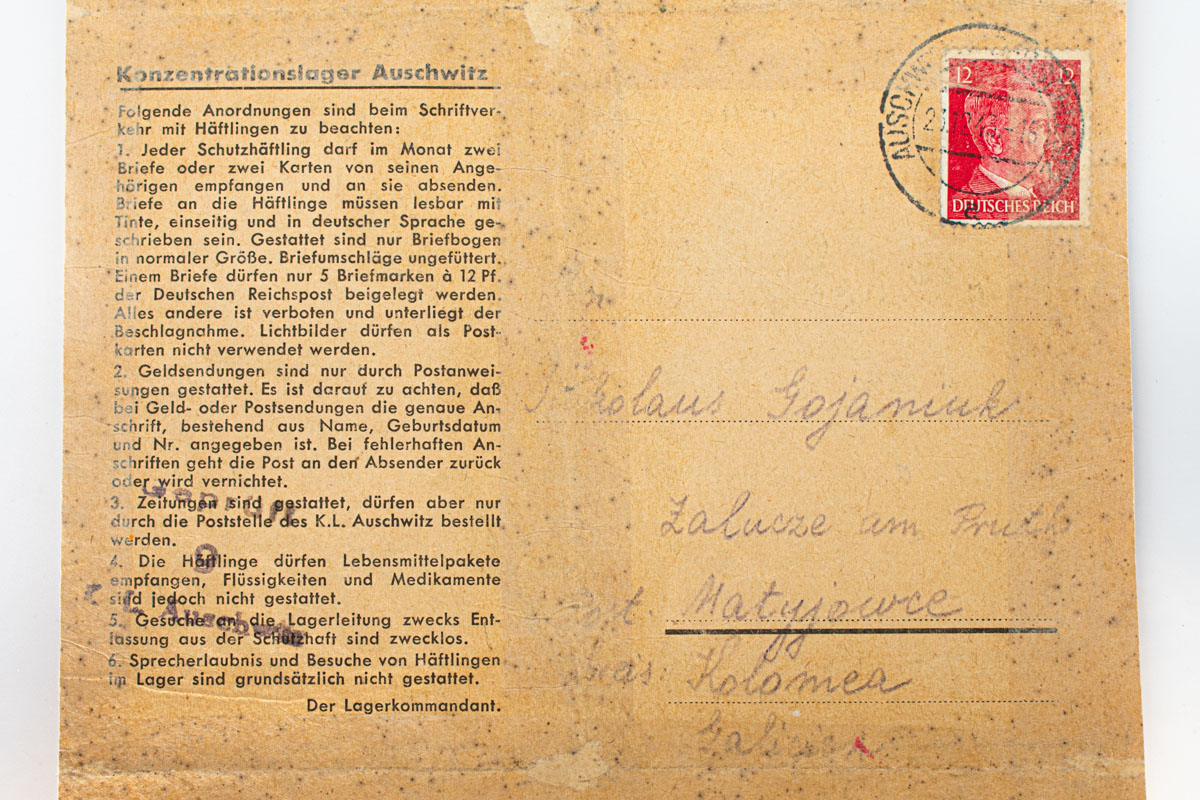 Konzentrationslager Auschwitz
Folgende Anordnungen sind beim Schriftver-
kehr mit Häftlingen zu beachten:
1. Jeder Schutzhäftling darf im Monat zwei
Briefe oder zwei Karten von seinen Ange-
hörigen empfangen und an sie absenden.
Briefe an die Häftlinge müssen lesbar mit
Tinte, einseitig und in deutscher Sprache ge-
schrieben sein. Gestattet sind nur Briefbogen
in normaler Größe. Briefumschläge ungefüttert.
Einem Briefe dürfen nur 5 Briefmarken à 12 Pf.
der Deutschen Reichspost beigelegt werden.
Alles andere ist verboten und unterliegt der
Beschlagnahme. Lichtbilder dürfen als Post-
karten nicht verwendet werden.
2. Geldsendungen sind nur durch Postanwei-
sungen gestattet. Es ist darauf zu achten, daß
bei Geld- oder Postsendungen die genaue An-
schrift, bestehend aus Name, Geburtsdatum
und Nr. angegeben ist. Bei fehlerhaften An-
schriften geht die Post an den Absender zurück
oder wird vernichtet.
3. Zeitungen sind gestattet, dürfen aber nur
durch die Poststelle des K.L. Auschwitz bestellt
werden.
4. Die Häftlinge dürfen Lebensmittelpakete
empfangen, Flüssigkeiten und Medikamente
sind jedoch nicht gestattet.
5. Gesuche an die Lagerleitung zwecks Ent-
lassung aus der Schutzhaft sind zwecklos.
6. Sprecherlaubnis und Besuche von Häftlingen
im Lager sind grundsätzlich nicht gestattet.
Der Lagerkommandant.
Geprüft
9
K. L. Auschwitz
12 12
DEUTSCHES REICH
Gojaniuk
Zalucze am Pruth
Post Matyjowce
Kreis Kolomea
Galizien